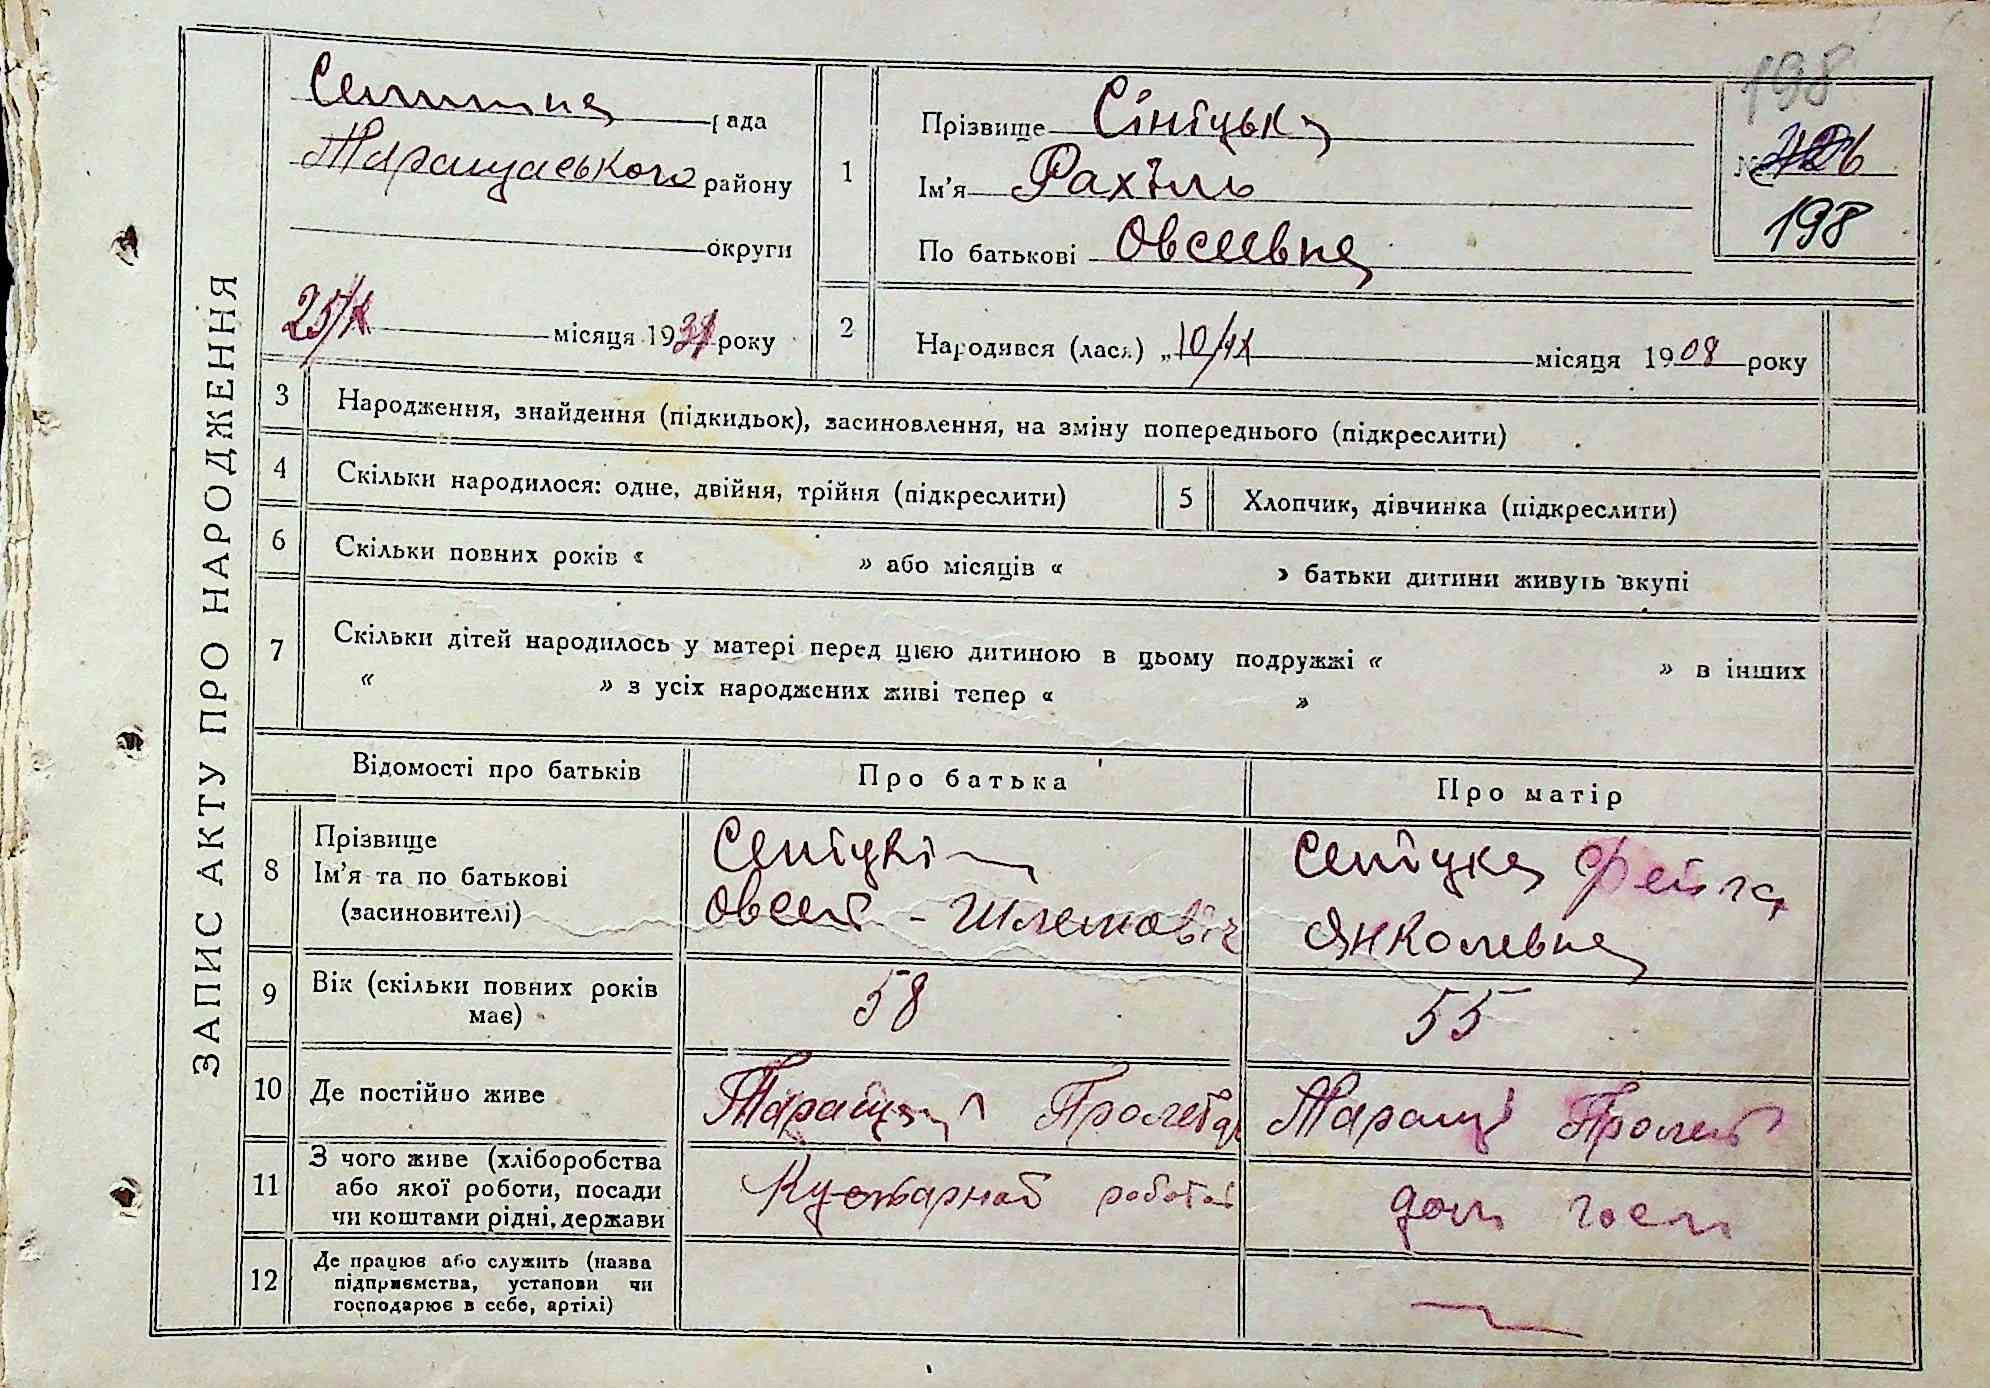 ЗАПИС АКТУ ПРО НАРОДЖЕННЯ
Селищна рада
Таращаського району
округи
25/X місяця 1931 року
1
Прізвище Сініцька
Ім'я Рахіль
По батькові Овсеевна
198
№
198
2
Народився (лася) „10/IX місяця 1908 року
3 Народження, знайдення (підкидьок), засиновлення, на зміну попереднього (підкреслити)
4 Скільки народилося: одне, двійня, трійня (підкреслити)
5 Хлопчик, дівчинка (підкреслити)
6 Скільки повних років « » або місяців « » батьки дитини живуть вкупі
7 Скільки дітей народилось у матері перед цією дитиною в цьому подружжі « » в інших
« » з усіх народжених живі тепер « »
Відомості про батьків Про батька Про матір
8 Прізвище
Ім'я та по батькові
(засиновителі)
Сеніцкі
Овсей - Шлемовіч
Сеніцка Фейга
Янколевна
9 Вік (скільки повних років
має)
58
55
10 Де постійно живе
Пролетар
Таращі Пролет
11 З чого живе (хліборобства
або якої роботи, посади
чи коштами рідні, держави
Кустарной работой
дом госп
12 Де працює або служить (назва
підприємства, установи чи
господарює в себе, артілі)